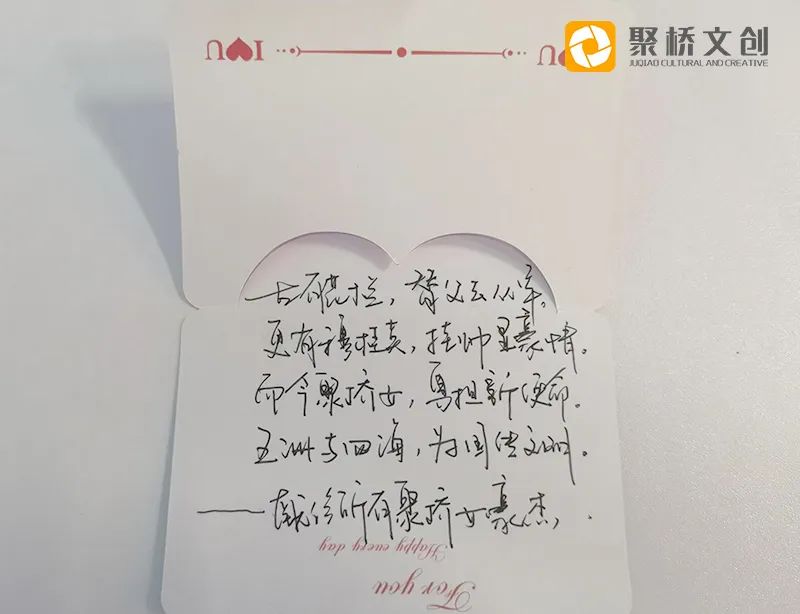 I♥U
♥U
聚桥文创
JUQIAO CULTURAL AND CREATIVE
古有花木兰，替父去从军。
更有穆桂英，挂帅显豪情。
而今聚桥女，肩担新使命。
五洲与四海，为国传文明。
——献给所有聚桥女豪杰，
Happy every day
For you